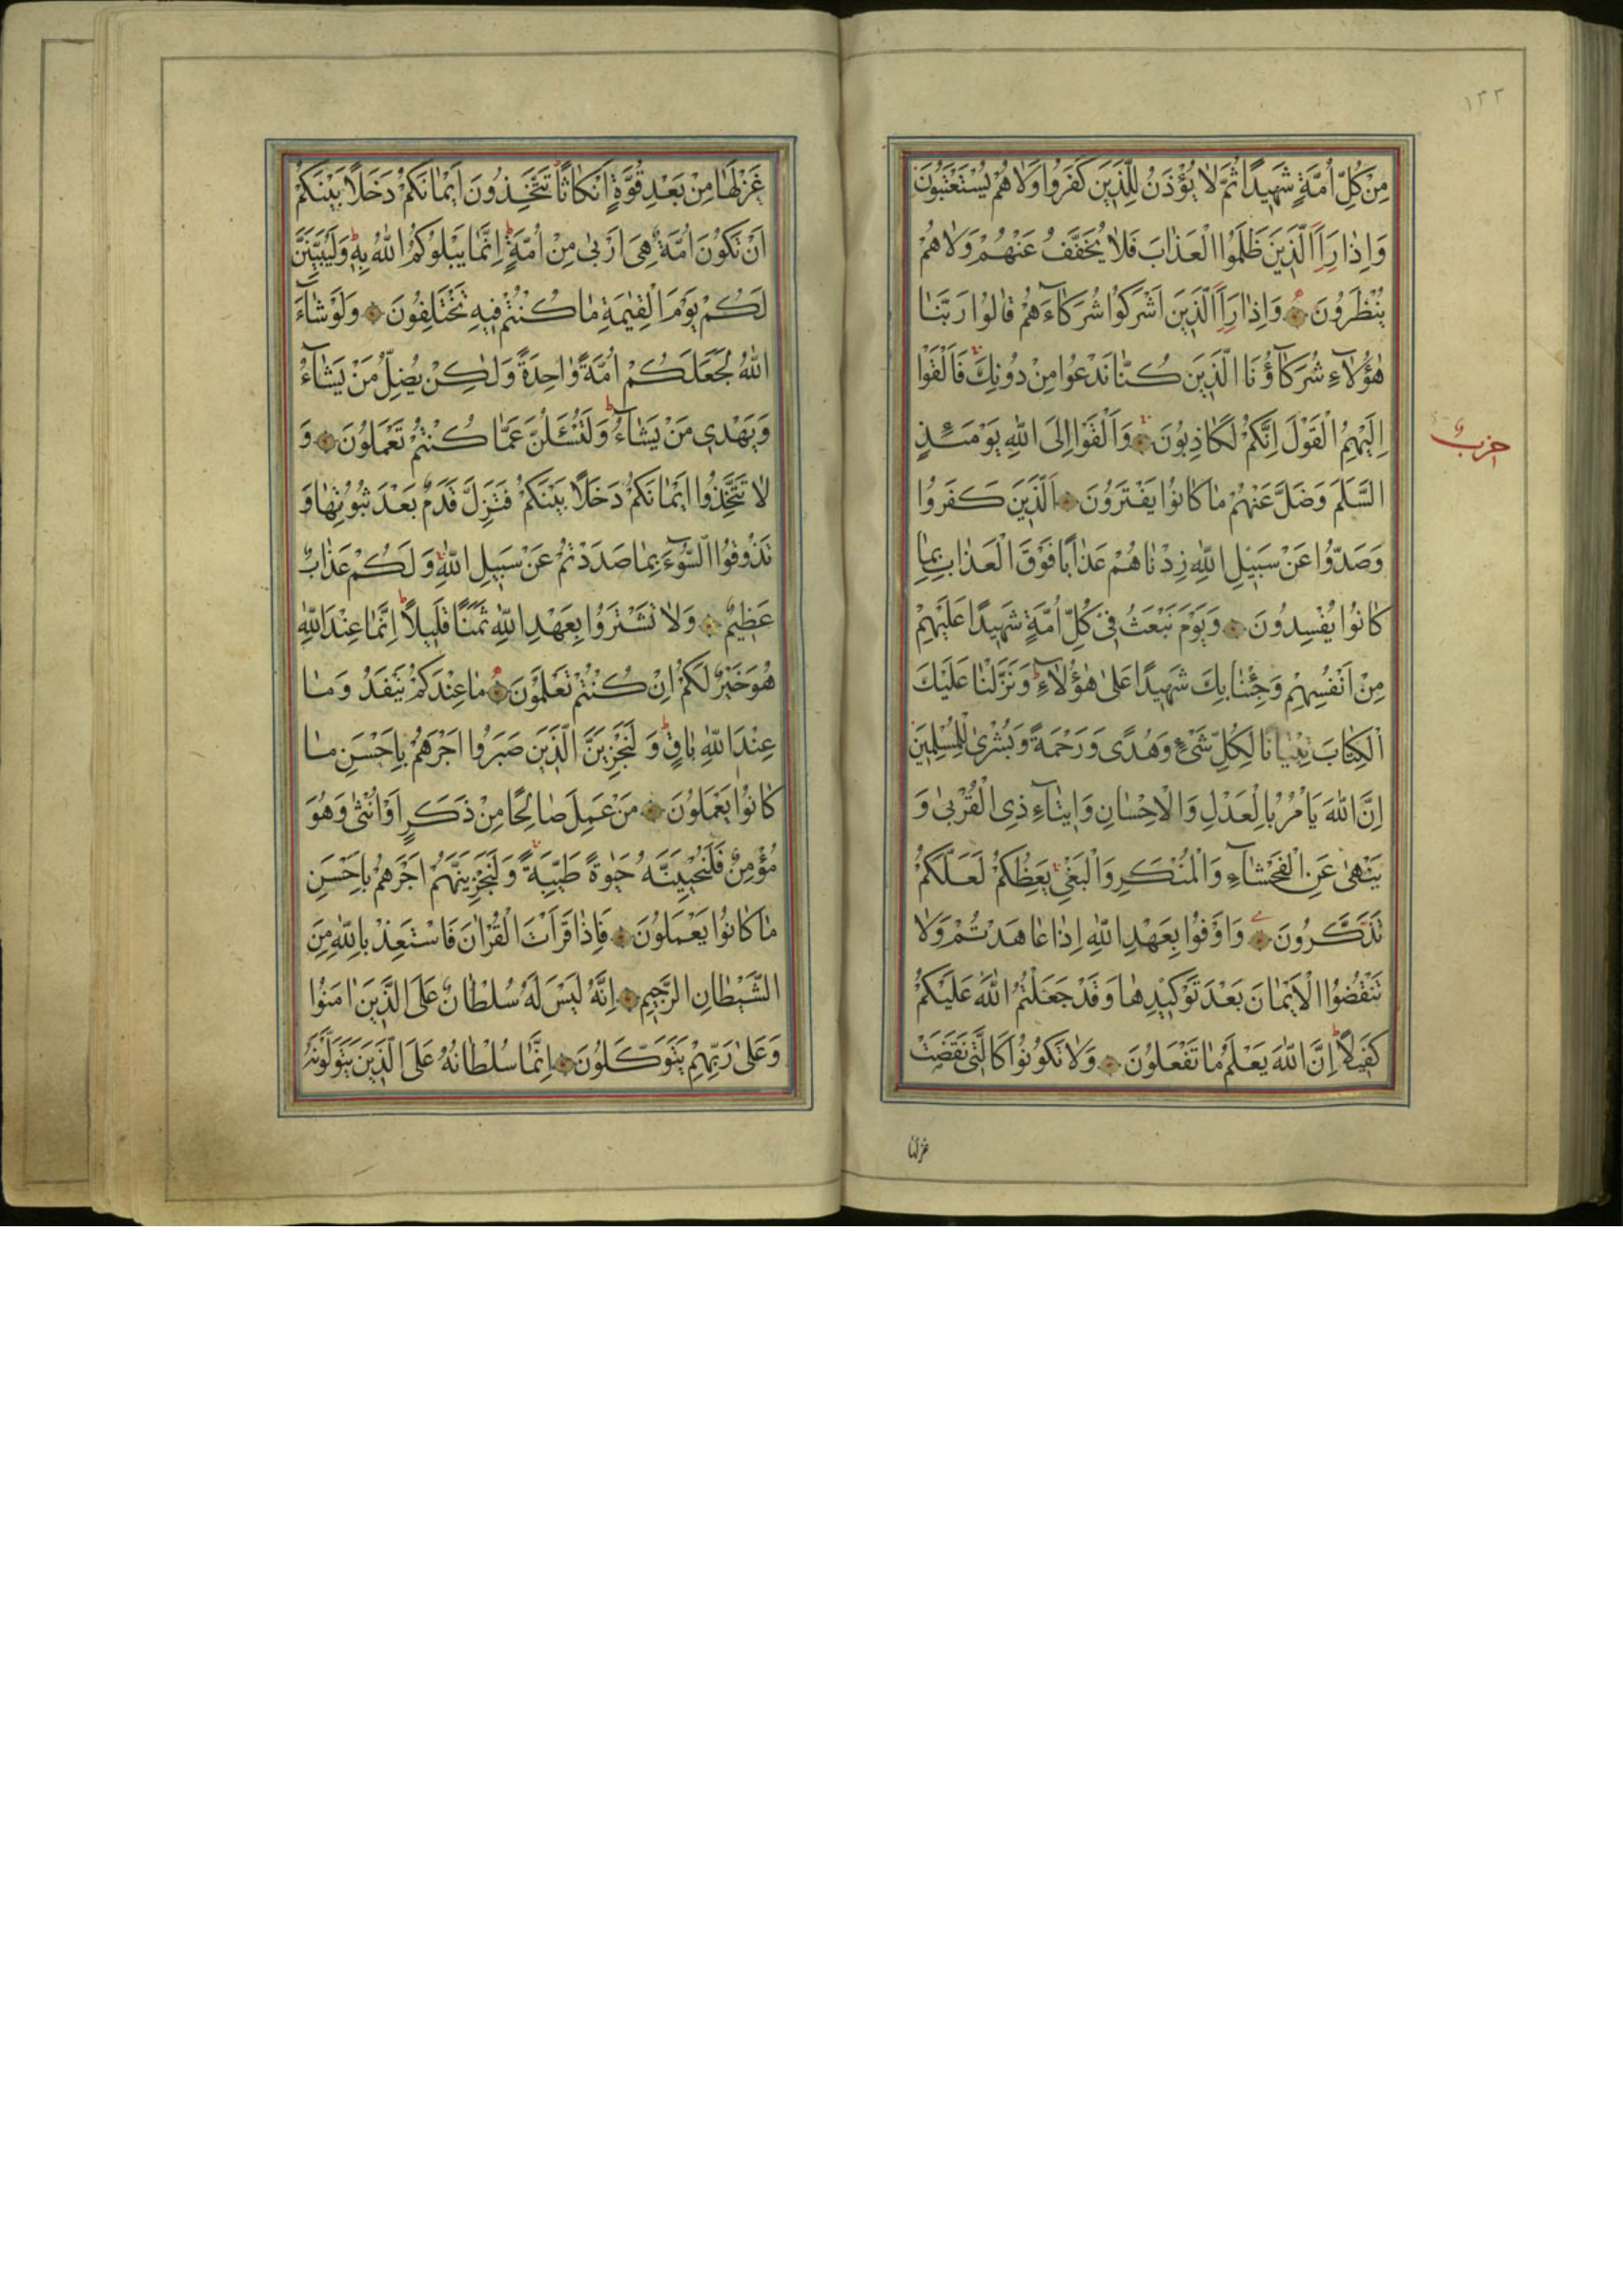 ١٣٣
مِنْ كُلِّ اُمَّةٍ شَهٖيدًا ثُمَّ لَا يُؤْذَنُ لِلَّذٖينَ كَفَرُوا وَلَا هُمْ يُسْتَعْتَبُونَ
وَاِذَا رَاَ الَّذٖينَ ظَلَمُوا الْعَذَابَ فَلَا يُخَفَّفُ عَنْهُمْ وَلَا هُمْ
يُنْظَرُونَ وَاِذَا رَاَ الَّذٖينَ اَشْرَكُوا شُرَكَآءَهُمْ قَالُوا رَبَّنَا
هٰٓؤُلَآءِ شُرَكَآؤُنَا الَّذٖينَ كُنَّا نَدْعُوا مِنْ دُونِكَ فَاَلْقَوْا
اِلَيْهِمُ الْقَوْلَ اِنَّكُمْ لَكَاذِبُونَ وَاَلْقَوْا اِلَى اللّٰهِ يَوْمَئِذٍ
حزب
السَّلَمَ وَضَلَّ عَنْهُمْ مَا كَانُوا يَفْتَرُونَ اَلَّذٖينَ كَفَرُوا
وَصَدُّوا عَنْ سَبٖيلِ اللّٰهِ زِدْنَاهُمْ عَذَابًا فَوْقَ الْعَذَابِ بِمَا
كَانُوا يُفْسِدُونَ وَيَوْمَ نَبْعَثُ فٖى كُلِّ اُمَّةٍ شَهٖيدًا عَلَيْهِمْ
مِنْ اَنْفُسِهِمْ وَجِئْنَا بِكَ شَهٖيدًا عَلٰى هٰٓؤُلَآءِ وَنَزَّلْنَا عَلَيْكَ
الْكِتَابَ تِبْيَانًا لِكُلِّ شَىْءٍ وَهُدًى وَرَحْمَةً وَبُشْرٰى لِلْمُسْلِمٖينَ
اِنَّ اللّٰهَ يَاْمُرُ بِالْعَدْلِ وَالْاِحْسَانِ وَاٖيتَآءِ ذِى الْقُرْبٰى وَ
يَنْهٰى عَنِ الْفَحْشَآءِ وَالْمُنْكَرِ وَالْبَغْىِ يَعِظُكُمْ لَعَلَّكُمْ
تَذَكَّرُونَ وَاَوْفُوا بِعَهْدِ اللّٰهِ اِذَا عَاهَدْتُمْ وَلَا
تَنْقُضُوا الْاَيْمَانَ بَعْدَ تَوْكٖيدِهَا وَقَدْ جَعَلْتُمُ اللّٰهَ عَلَيْكُمْ
كَفٖيلًا اِنَّ اللّٰهَ يَعْلَمُ مَا تَفْعَلُونَ وَلَا تَكُونُوا كَالَّتٖى نَقَضَتْ
غزلها
غَزْلَهَا مِنْ بَعْدِ قُوَّةٍ اَنْكَاثًا تَتَّخِذُونَ اَيْمَانَكُمْ دَخَلًا بَيْنَكُمْ
اَنْ تَكُونَ اُمَّةٌ هِىَ اَرْبٰى مِنْ اُمَّةٍ اِنَّمَا يَبْلُوكُمُ اللّٰهُ بِهٖ وَلَيُبَيِّنَنَّ
لَكُمْ يَوْمَ الْقِيٰمَةِ مَا كُنْتُمْ فٖيهِ تَخْتَلِفُونَ وَلَوْ شَآءَ
اللّٰهُ لَجَعَلَكُمْ اُمَّةً وَاحِدَةً وَلٰكِنْ يُضِلُّ مَنْ يَشَآءُ
وَيَهْدٖى مَنْ يَشَآءُ وَلَتُسْئَلُنَّ عَمَّا كُنْتُمْ تَعْمَلُونَ وَ
لَا تَتَّخِذُوا اَيْمَانَكُمْ دَخَلًا بَيْنَكُمْ فَتَزِلَّ قَدَمٌ بَعْدَ ثُبُوتِهَا وَ
تَذُوقُوا السُّوٓءَ بِمَا صَدَدْتُمْ عَنْ سَبٖيلِ اللّٰهِ وَلَكُمْ عَذَابٌ
عَظٖيمٌ وَلَا تَشْتَرُوا بِعَهْدِ اللّٰهِ ثَمَنًا قَلٖيلًا اِنَّمَا عِنْدَ اللّٰهِ
هُوَ خَيْرٌ لَكُمْ اِنْ كُنْتُمْ تَعْلَمُونَ مَا عِنْدَكُمْ يَنْفَدُ وَمَا
عِنْدَ اللّٰهِ بَاقٍ وَلَنَجْزِيَنَّ الَّذٖينَ صَبَرُوا اَجْرَهُمْ بِاَحْسَنِ مَا
كَانُوا يَعْمَلُونَ مَنْ عَمِلَ صَالِحًا مِنْ ذَكَرٍ اَوْ اُنْثٰى وَهُوَ
مُؤْمِنٌ فَلَنُحْيِيَنَّهُ حَيٰوةً طَيِّبَةً وَلَنَجْزِيَنَّهُمْ اَجْرَهُمْ بِاَحْسَنِ
مَا كَانُوا يَعْمَلُونَ فَاِذَا قَرَاْتَ الْقُرْاٰنَ فَاسْتَعِذْ بِاللّٰهِ مِنَ
الشَّيْطَانِ الرَّجٖيمِ اِنَّهُ لَيْسَ لَهُ سُلْطَانٌ عَلَى الَّذٖينَ اٰمَنُوا
وَعَلٰى رَبِّهِمْ يَتَوَكَّلُونَ اِنَّمَا سُلْطَانُهُ عَلَى الَّذٖينَ يَتَوَلَّوْنَهُ